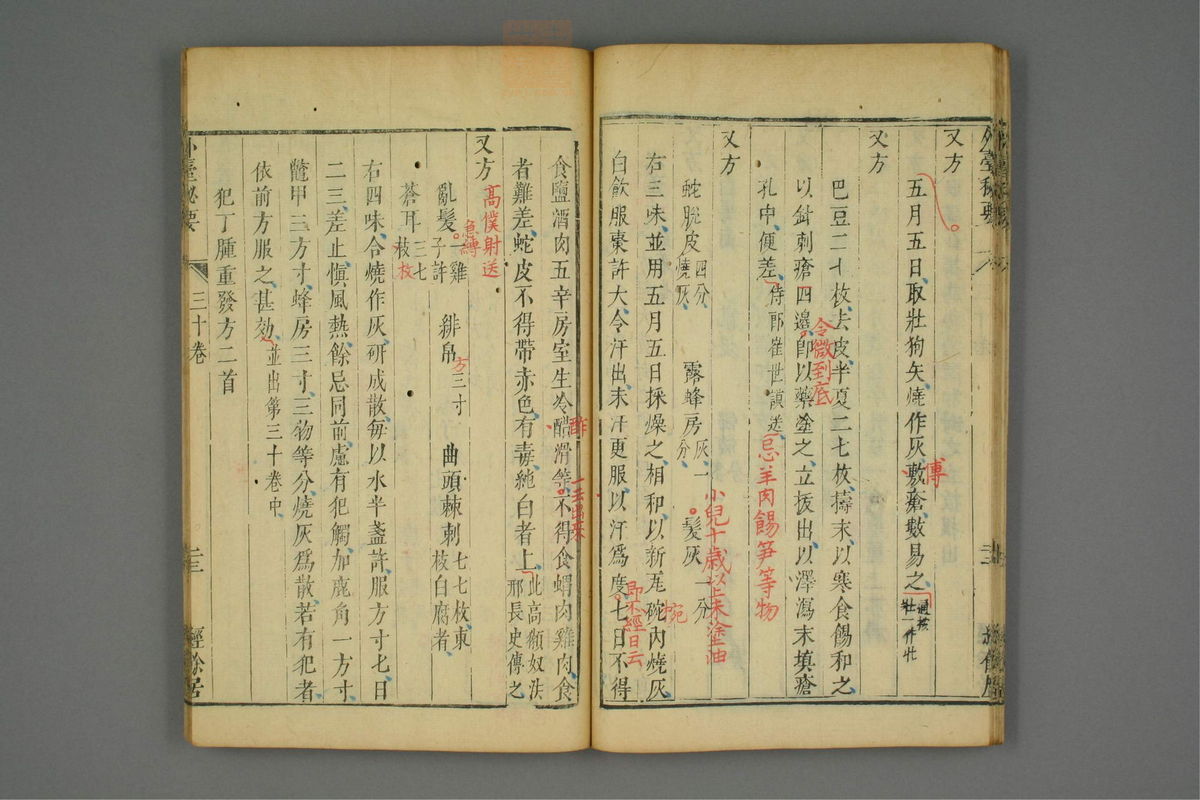 又方
五月五日取壯狗矢燒作灰敷瘡數易之
傅
壯一作牡
又方
巴豆二十枚去皮半夏二七枚擣末以寒食餳和之
以針刺瘡四邊卽以藥塗之立拔出以澤瀉末填瘡
令微到底
孔中便差侍郎崔世謨送
忌羊肉餳笋等物
又方
蛇脫皮四分燒灰 露蜂房灰一分 髮灰一分
小兒十歲以上末塗油
右三味並用五月五日採燥之相和以新瓦碗內燒灰
椀
白飲服棗許大令汗出末汗更服以汗爲度七日不得
卽不經日云
外臺秘要
三十卷
二三
經餘居
食鹽酒肉五辛房室生冷醋滑等不得食蝟肉雞肉食
酢
者難差蛇皮不得帶赤色有毒純白者上此高纇奴法邢長史傳之
又方
高僕射送
亂髮一雞子許 緋帛三寸 曲頭棘刺七七枚東枝白腐者
急縛
方
蒼耳三七枝
枚
右四味合燒作灰研成散每以水半盞許服方寸匕日
二三差止慎風熱餘忌同前慮有犯觸加鹿角一方寸
鼈甲三方寸蜂房三寸三物等分燒灰爲散若有犯者
依前方服之甚効並出第三十卷中
犯丁腫重發方二首